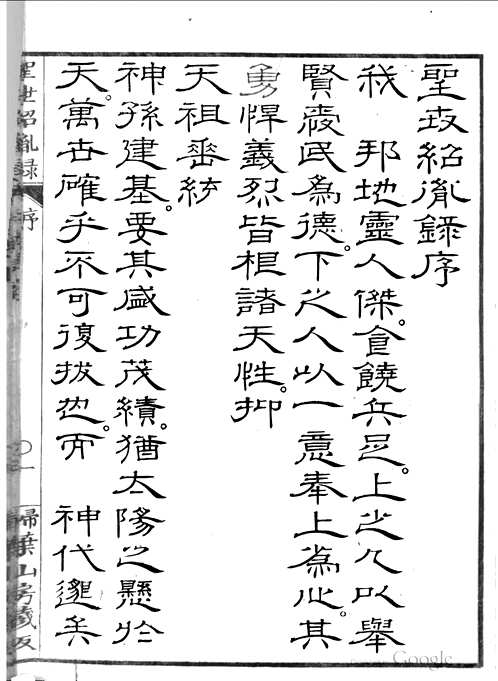 聖世紹胤錄序
我　邦地靈人傑。食饒兵足。上之人以舉
賢愛民為德。下之人以一意奉上為心。其
勇悍義烈皆根諸天性。抑
天祖垂統
神孫建基。要其盛功茂績。猶太陽之懸於
天。萬古確乎不可復拔也。而　神代邈矣
聖世紹胤録　序　〇一　掃葉山房藏板
Google